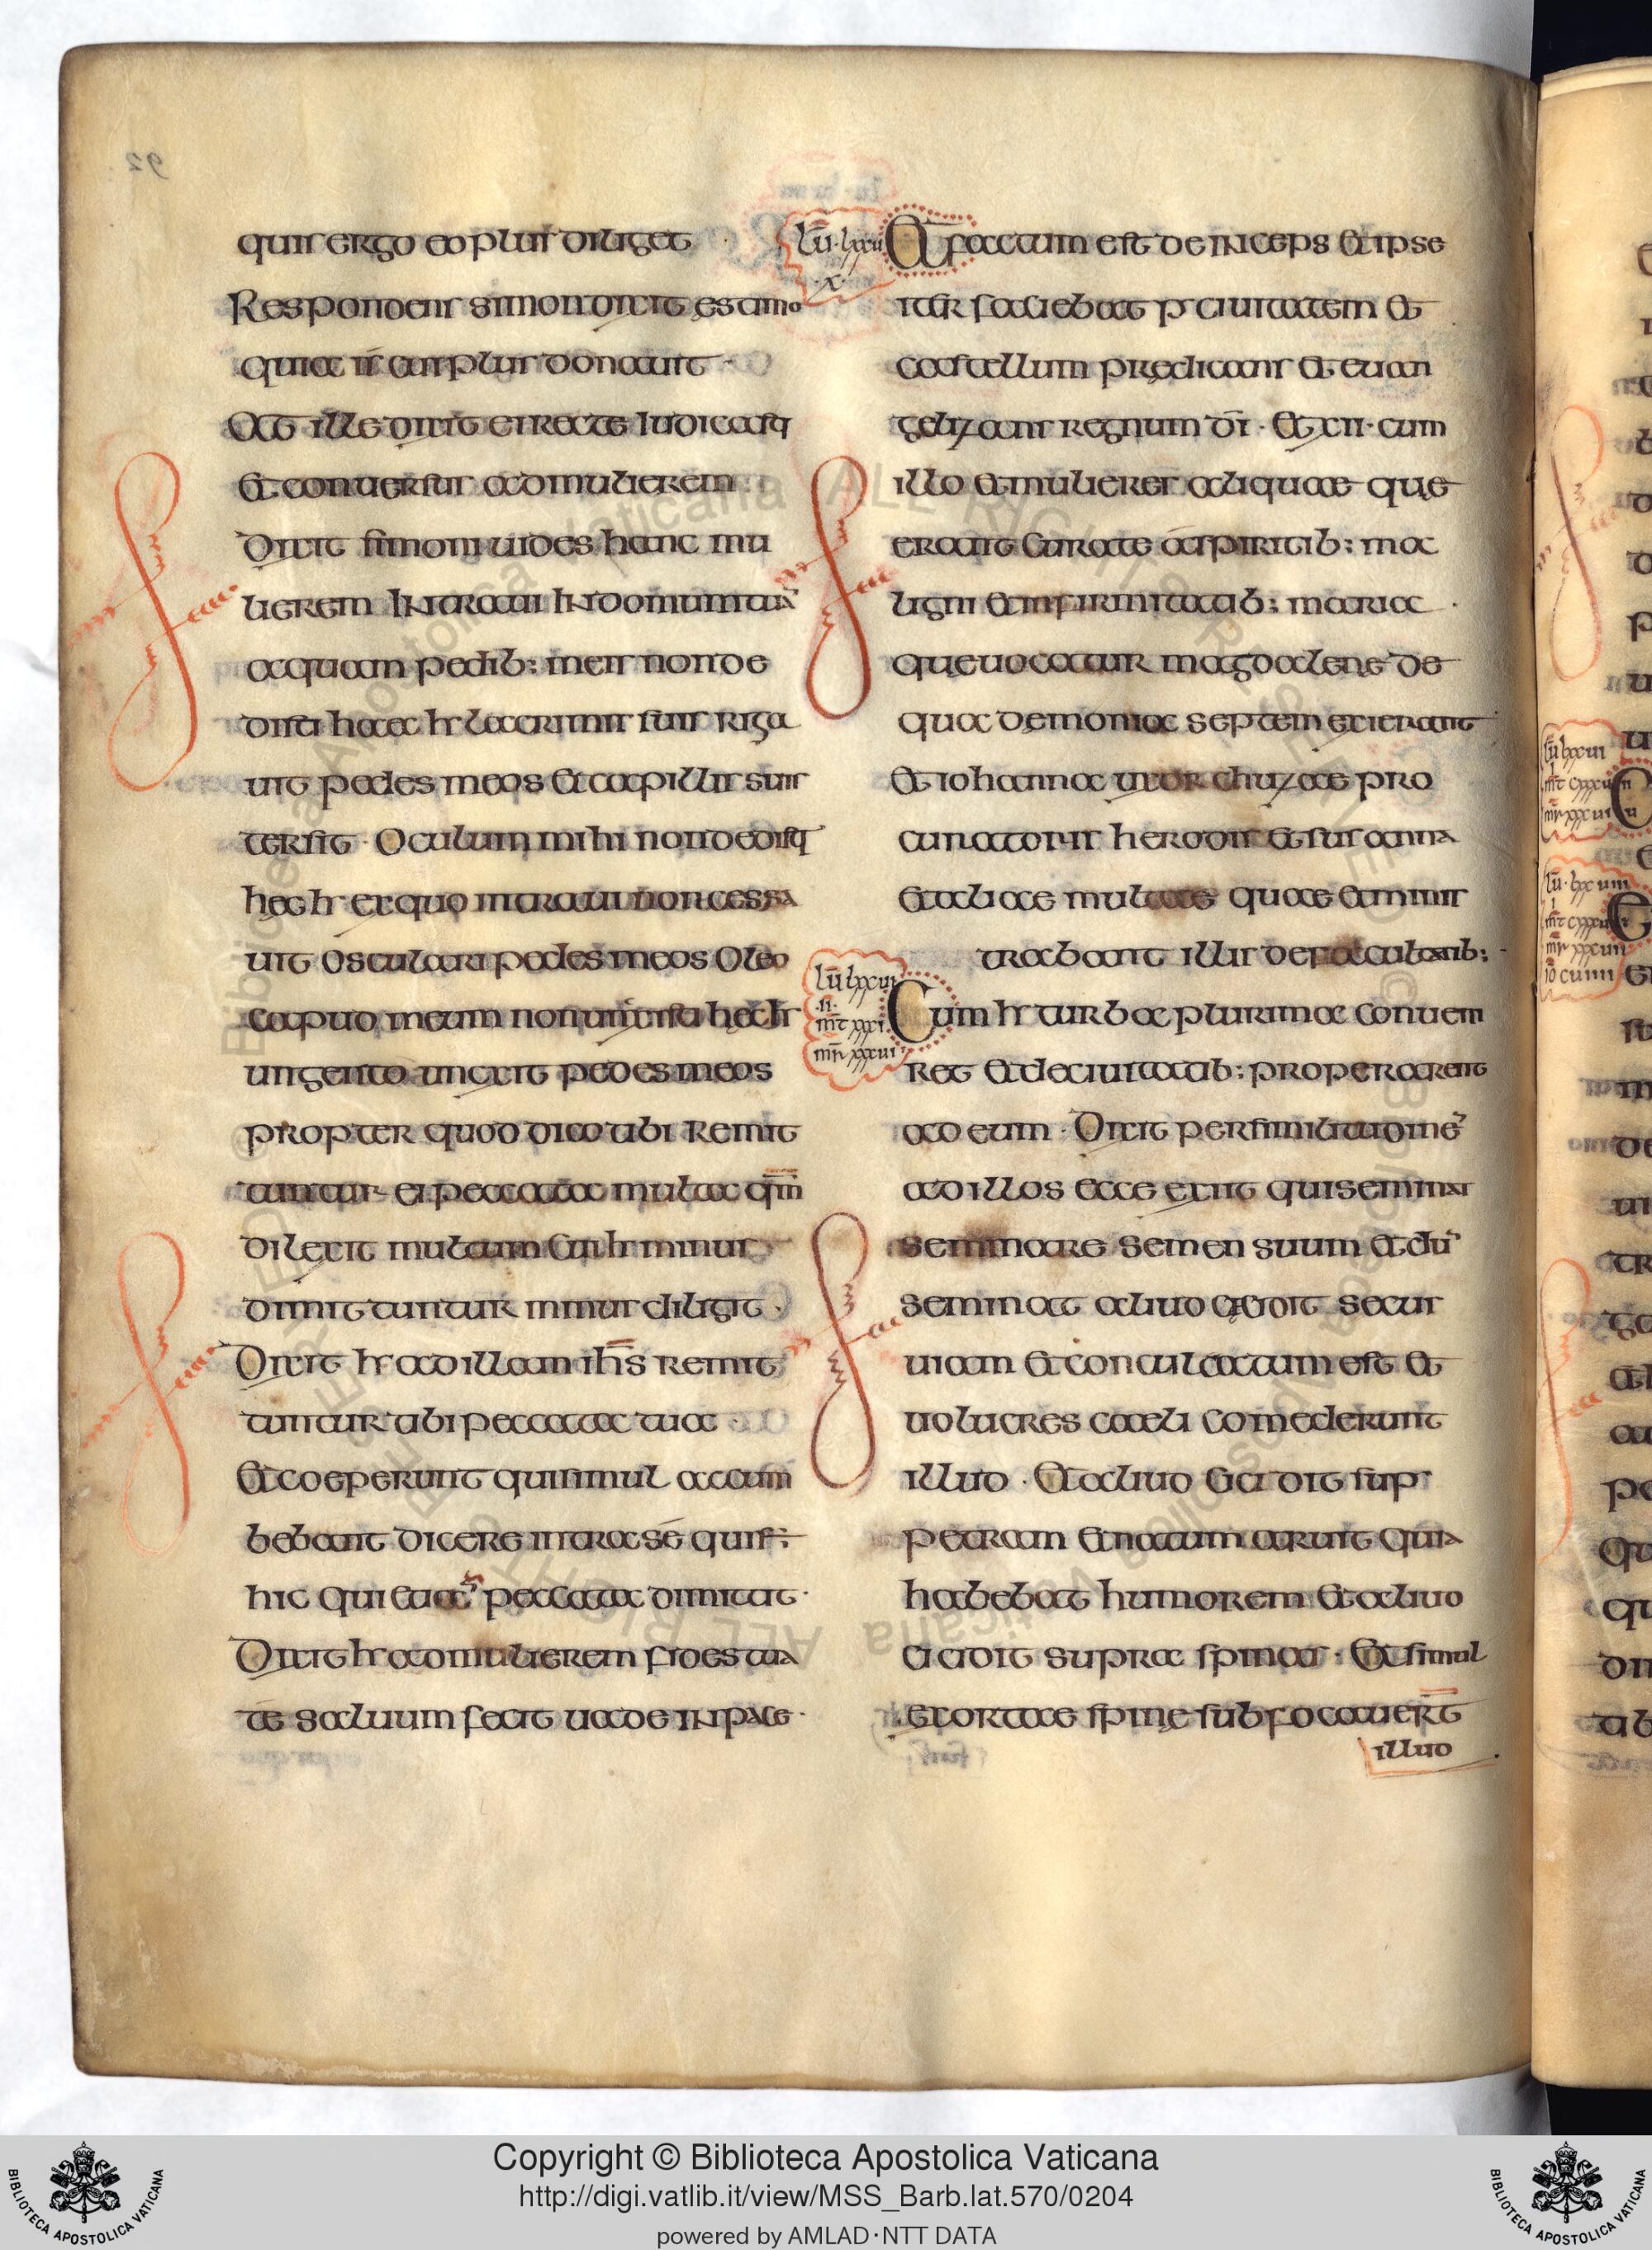 quis ergo eo plus diliget
Respondens simon dixit estimo
quia is cui plus donauit
At ille dixit ei recte iudicasti
Et conuersus ad mulierem
Dixit simoni uides hanc mu
lierem Intraui In domum tuā
aquam pedib: meis non de
disti haec hr lacrimis suis riga
uit pedes meos et capillis suis
tersit · Osculum mihi non dedisti
hec hr ex quo intraui non cessa
uit osculari pedes meos Oleo
caput meum non unxisti hec hr
ungento unxit pedes meos
propter quod dico tibi Remit
tuntur ei peccata multa qm̄
dilexit multum Cui hr minus
dimittuntur minus diligit ·
Dixit hr ad illam ihs̄ remit
tuntur tibi peccata tua ·
Et coeperunt qui simul accum
bebant dicere intra sé quis ÷
hic qui etiā peccata dimitat ·
Dixit hr ad mulierem fides tua
té saluum fecit uade in pace ·
lū · lxxu
x
Et factum est deinceps et ipse
iter faciebat p ciuitatem et
castellum predicans et euan
gelizans regnum dī · Et xii · cum
illo et mulieres aliquae que
erant Curate á spiritib: ma
lignis et infirmitatib: maria ·
que uocatur magdalene de
qua demonia septem exierant
Et iohanna uxor chuzae pro
curatoris herodis et susanna
et aliae multae quae et minis
trabant illis de facultatib:
lū lxxui
·ii·
mt̄ xxxi
mr̄ xxxui
Cum hr turba plurima conuem
ret et de ciuitatib: properarent
ad eum · Dixit per similitudinē
ad illos ecce exiit qui seminat
seminare semen suum et dū
seminat aliud cęcidit secus
uiam et conculcatum est et
uolucres caeli comederunt
illud · Et aliud Cicidit sup
petram et natum aruit quia
habebat humorem et aliud
Cicidit supra spinas · Et simul
exortae spinę subfocauert̄
illud
Copyright © Biblioteca Apostolica Vaticana
http://digi.vatlib.it/view/MSS_Barb.lat.570/0204
powered by AMLAD·NTT DATA
BIBLIOTECA APOSTOLICA VATICANA
BIBLIOTECA APOSTOLICA VATICANA